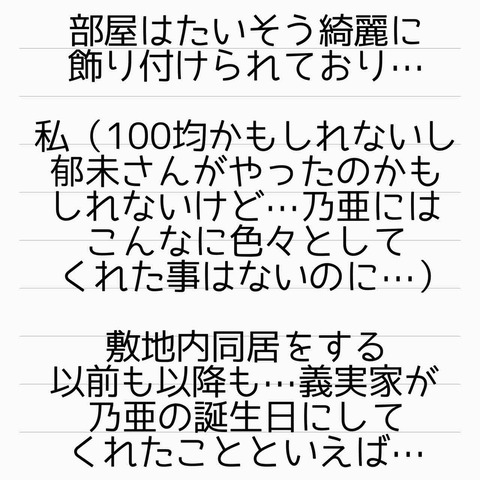 部屋はたいそう綺麗に
飾り付けられており…
私（100均かもしれないし
郁未さんがやったのかも
しれないけど…乃亜には
こんなに色々として
くれた事はないのに…）
敷地内同居をする
以前も以降も…義実家が
乃亜の誕生日にして
くれたことといえば…